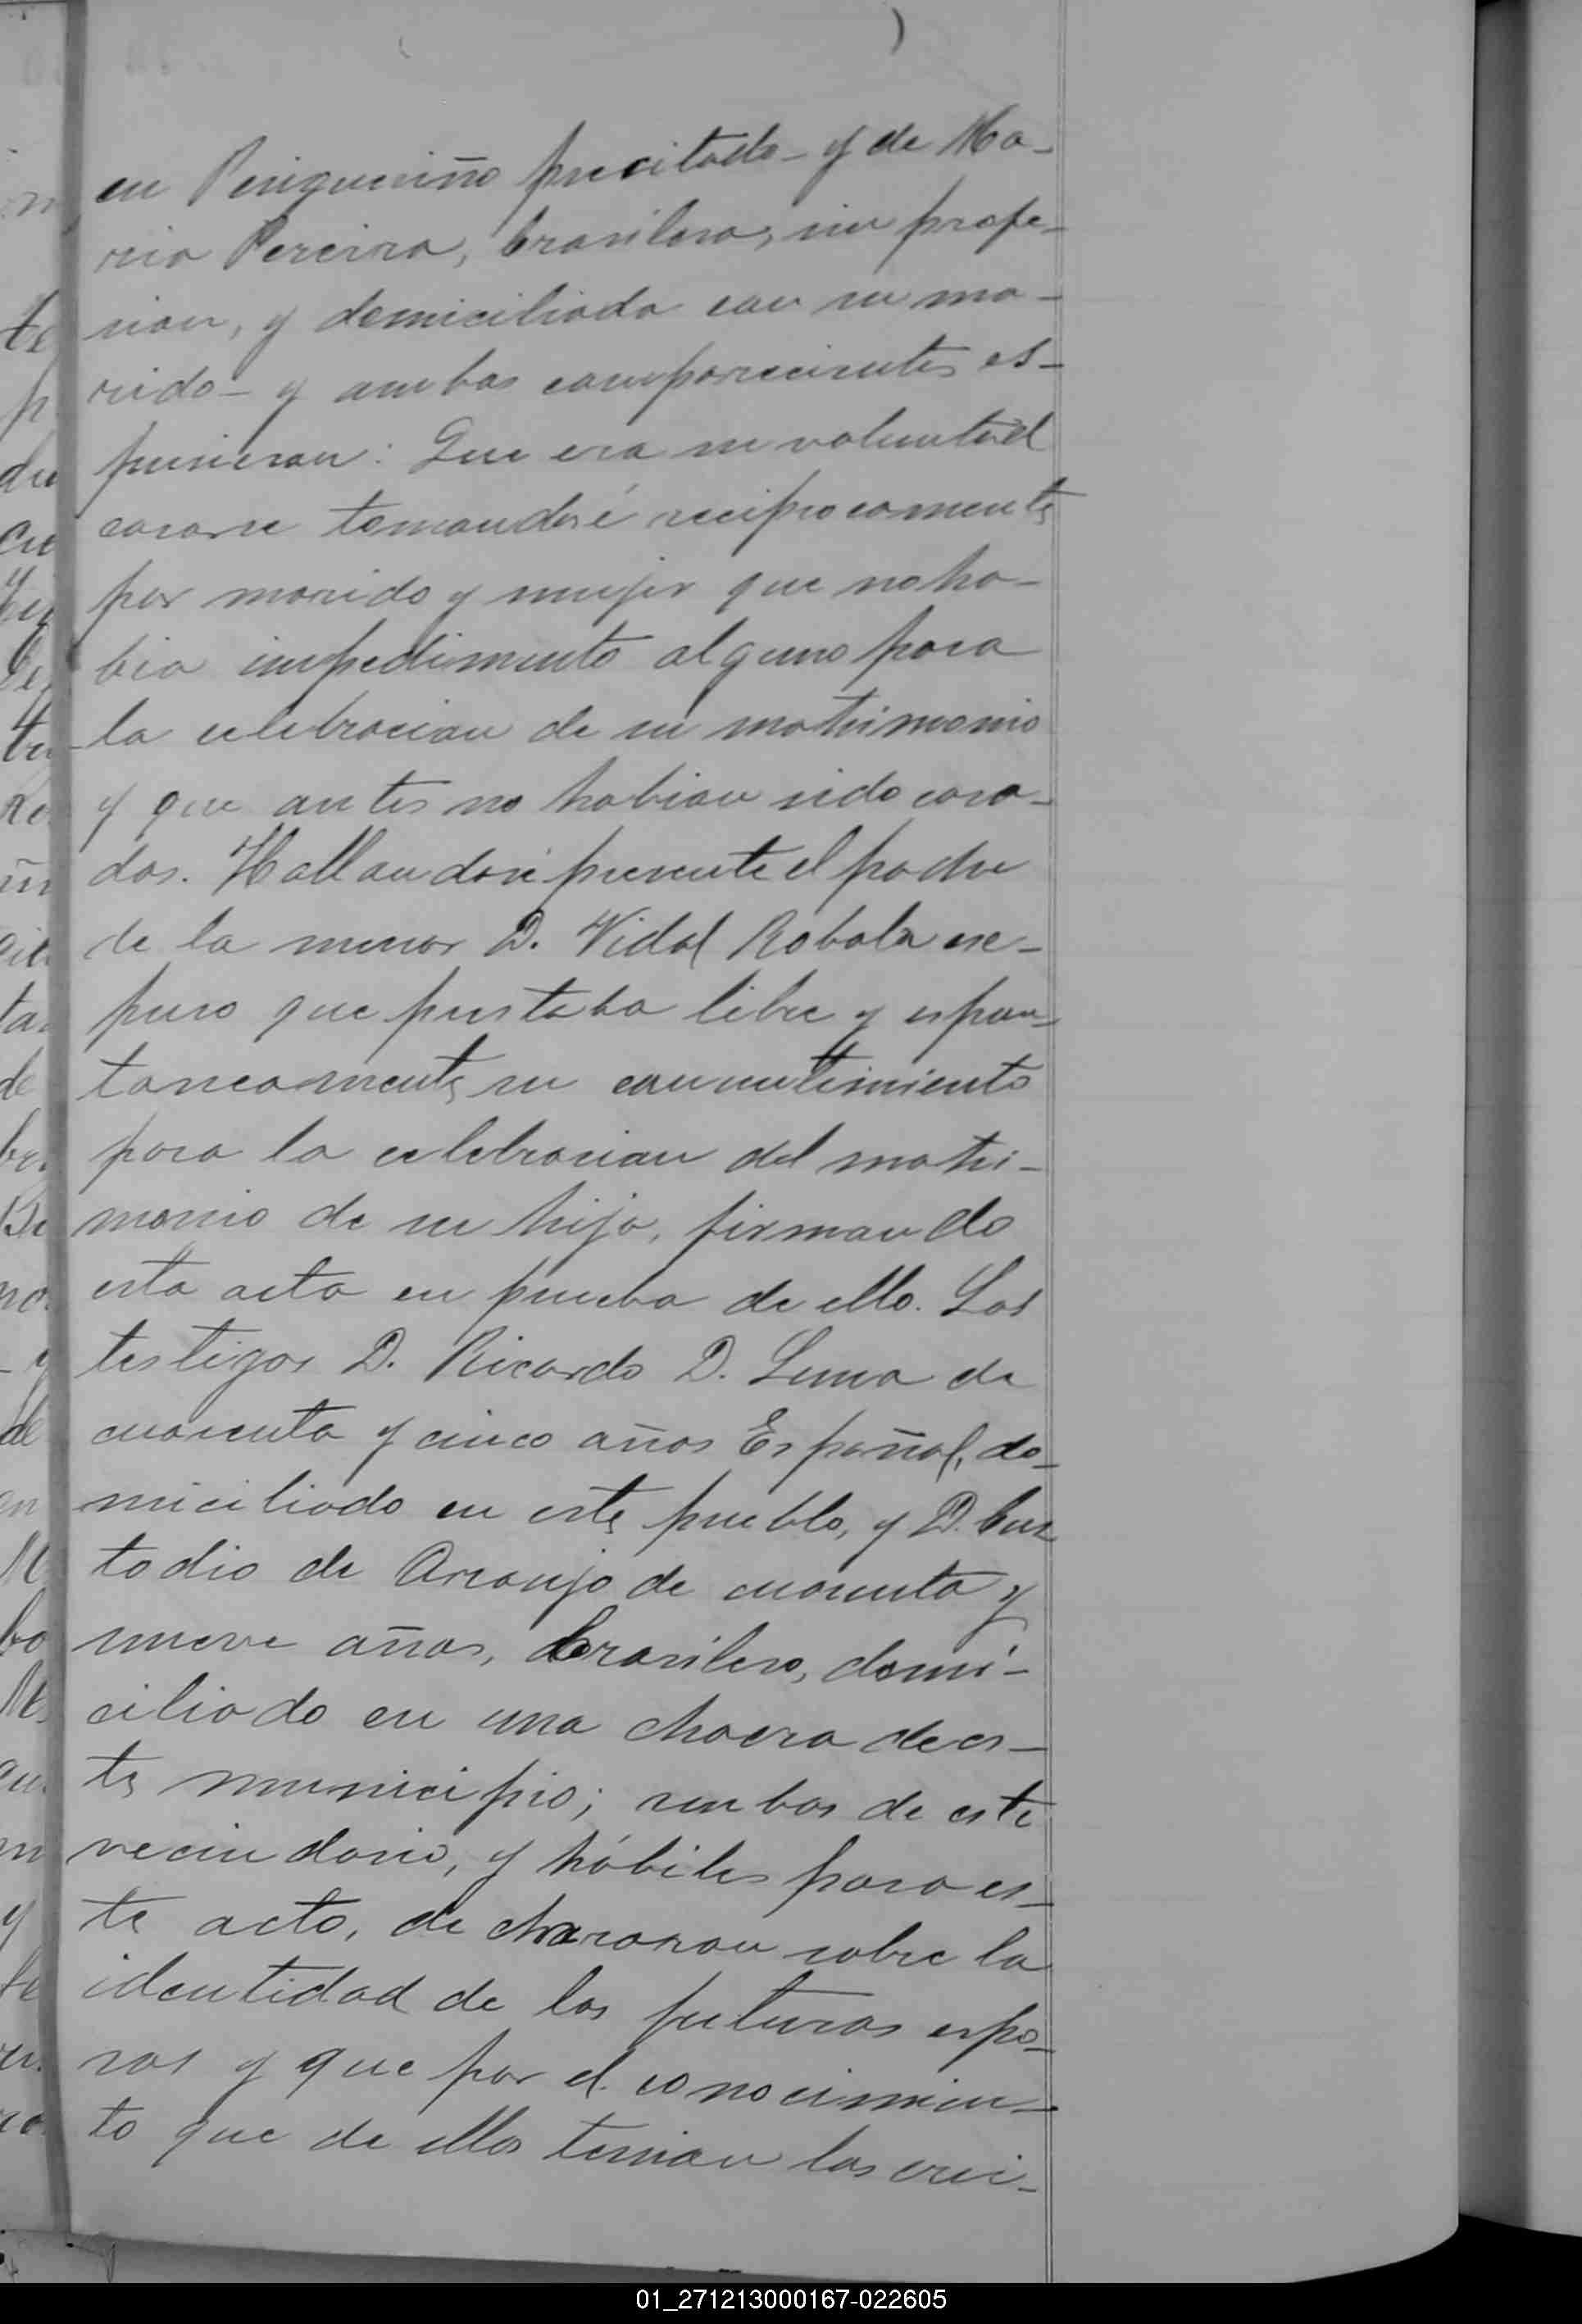 en Periqueriño precitado - y de Ma-
ria Pereira, brasilera, sin profe-
sion, y domiciliada con su ma-
rido - y ambos comparecientes es-
pusieron: Que era su voluntad
casarse tomandosé reciprocamente
por marido y mujer que no ha-
bia impedimento alguno para
la celebracion de su matrimonio
y que antes no habian sido casa-
dos. Hallandosé presente el padre
de la menor D. Vidal Robala es-
puso que prestaba libre y espon-
taneamente su consentimiento
para la celebracion del matri-
monio de su hija, firmando
esta acta en prueba de ello. Los
testigos D. Ricardo D. Luna de
cuarenta y cinco años Español, do-
miciliado en este pueblo, y D. Cus
todio de Araujo de cuarenta y
nueve años, brasilero, domi-
ciliado en una chacra de es-
te municipio; ambos de este
vecindario, y hábiles para es-
te acto, de chararon sobre la
identidad de los futuros espo-
sos y que por el conocimien-
to que de ellos tenian los crei-
01_271213000167-022605